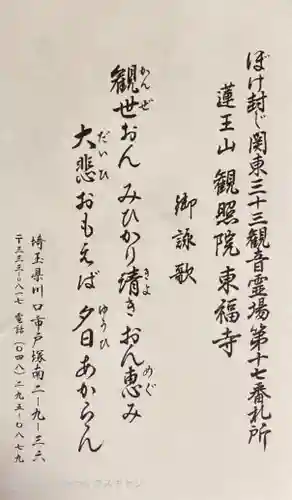 ぼけ封じ関東三十三観音霊場第十七番札所
蓮王山 観照院 東福寺
御詠歌
観世おん みひかり清き おん恵み
かんぜ きよ めぐ
大悲おもえば 夕日あからん
だいひ ゆうひ
埼玉県川口市戸塚南二ー九ー三六
〒三三三ー八一七 電話(〇四八)二九五ー〇八七九